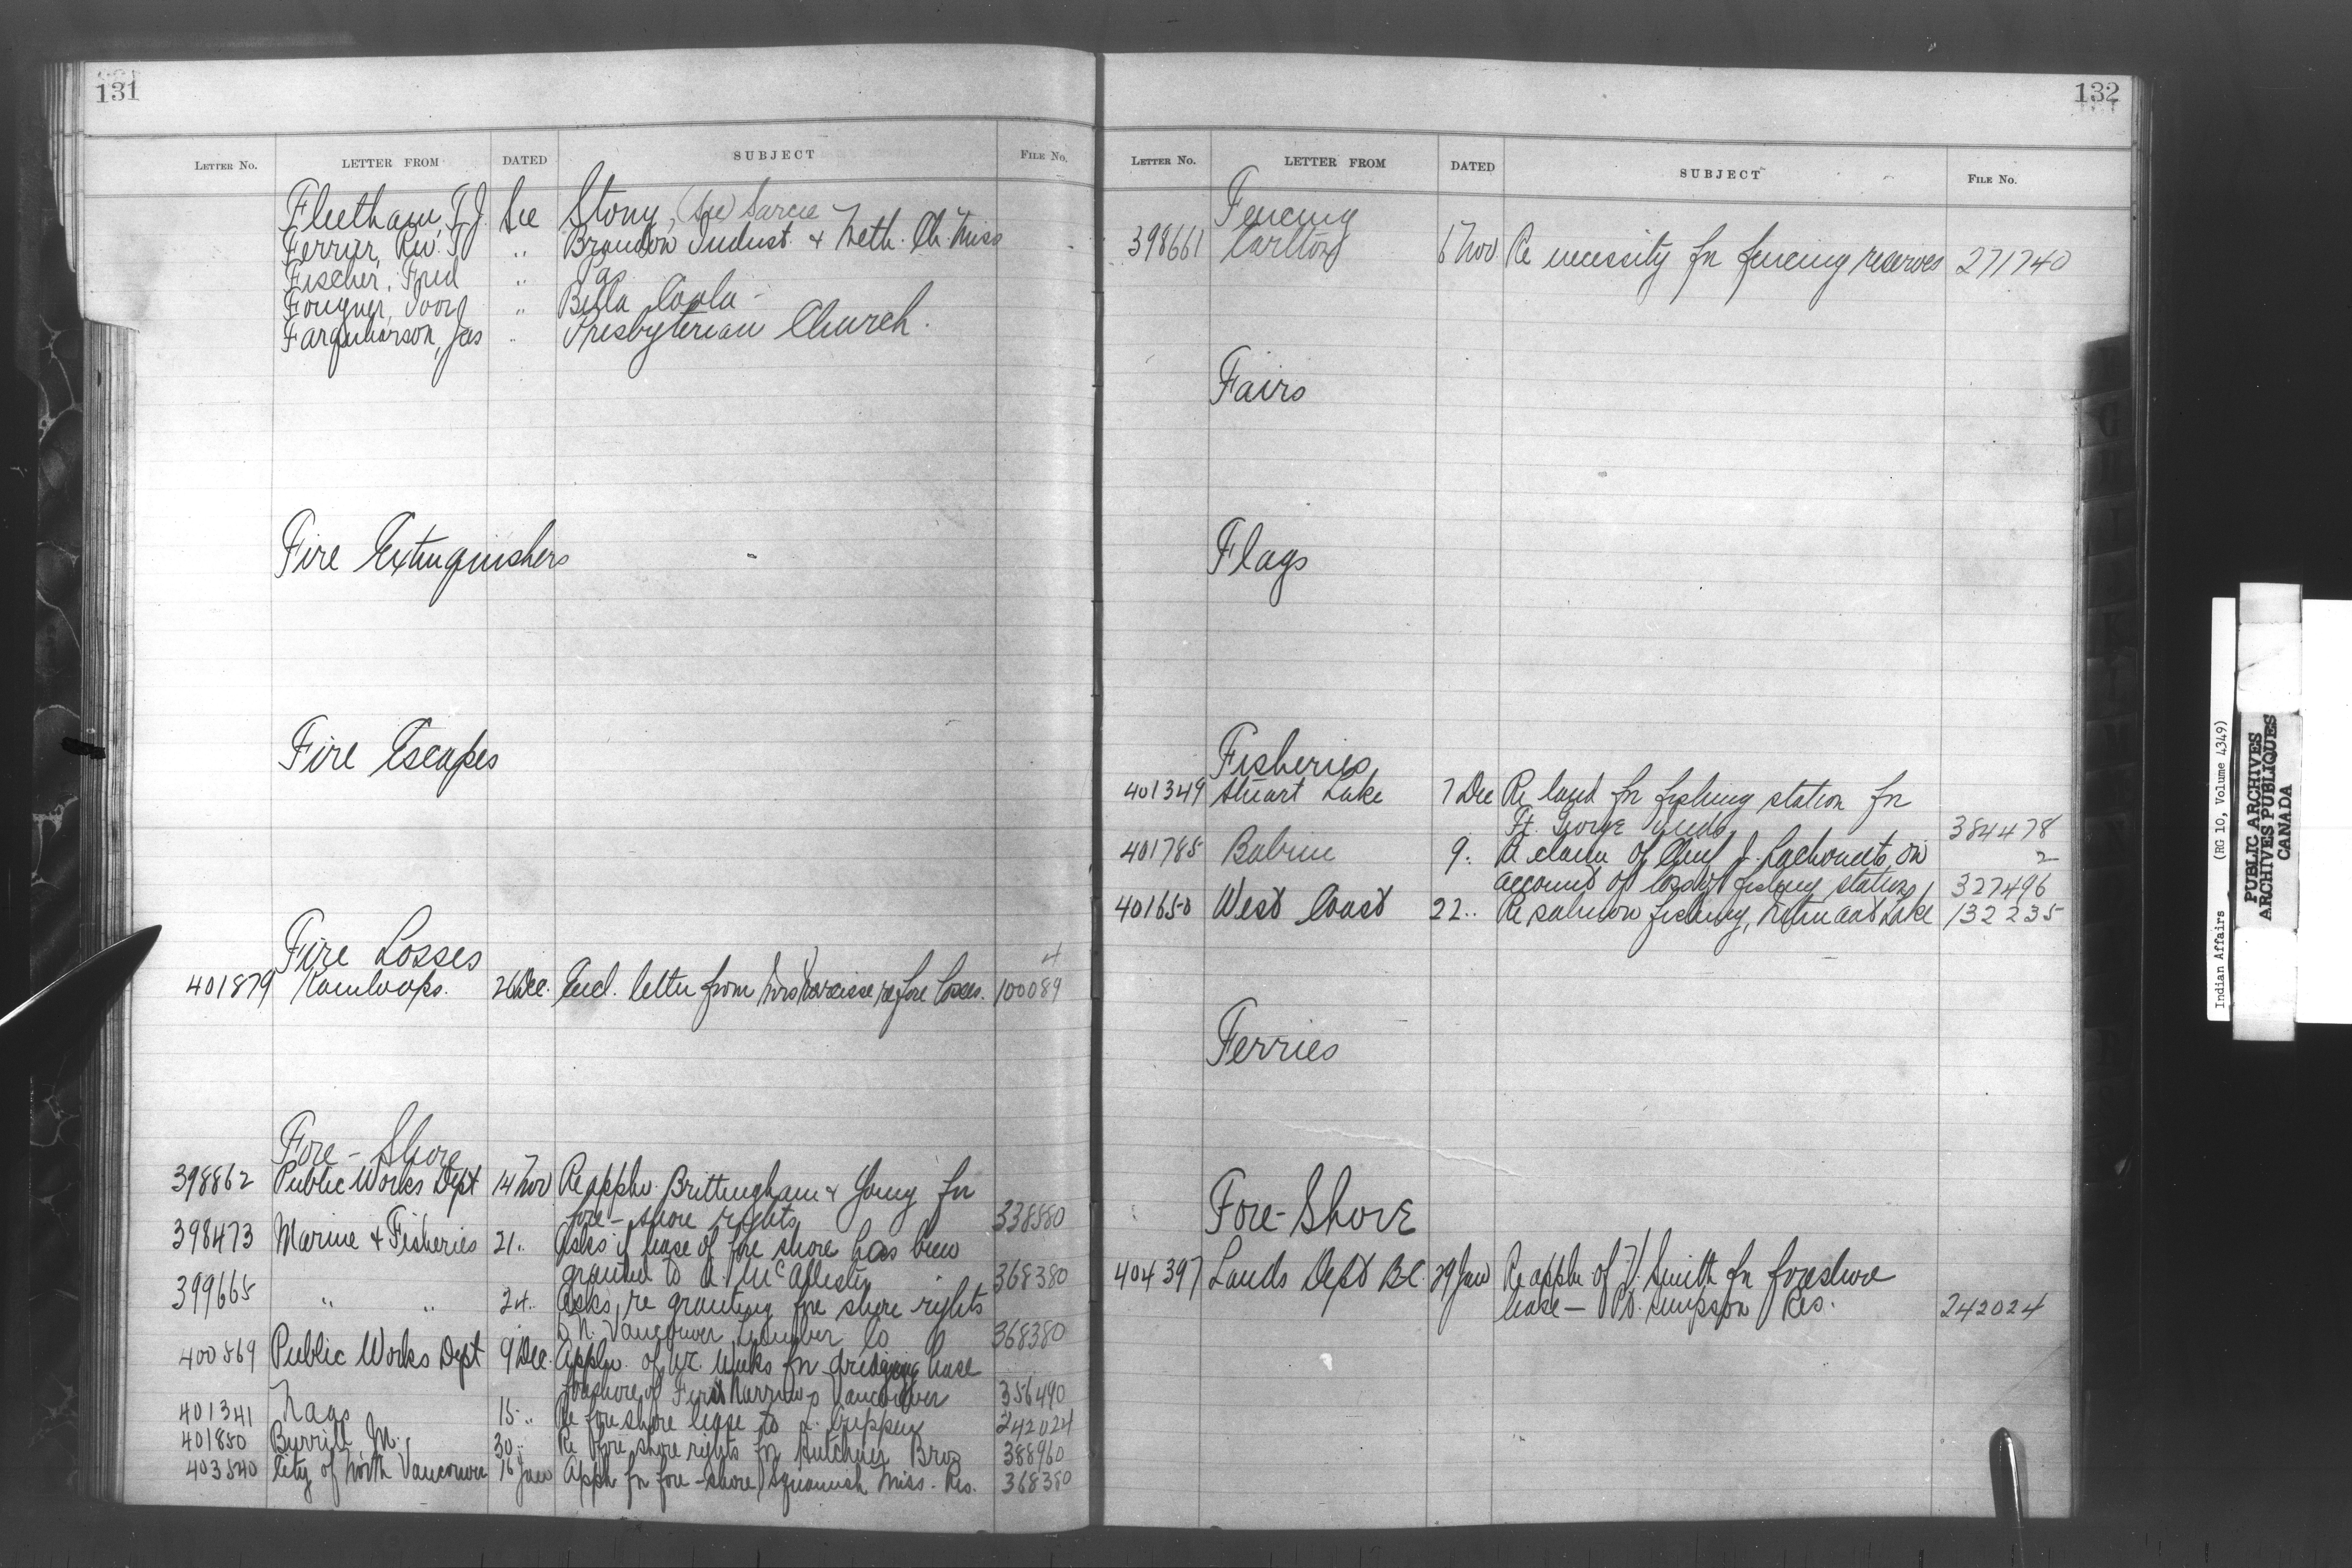 131
LETTER No. LETTER FROM DATED SUBJECT FILE No.
Fleetham, T.J. See Stony, (see) Sarcee
Ferrier, Rev. T. " Brandon Indust. & Meth. Ch. Miss
Fischer, Fred " Pas
Fougner, Ivor " Bella Coola -
Farquharson, Jas " Presbyterian Church.
Fire Extinguishers
Fire Escapes
Fire Losses
401879 Kamloops. 26 Dec. Encl. letter from Mrs Narcisse re fire losses. 100089
4
Fore - Shore
398862 Public Works Dept 14 Nov Re appln. Brittingham & Young for
fore-shore rights 338580
398473 Marine & Fisheries 21 " Asks if lease of fore shore has been
granted to A. McAllister 368380
399665 " " 24 " Asks, re granting fore shore rights
N. Vancouver Lumber Co 368380
400569 Public Works Dept 9 Dec. Appln. of for dredging lease
foreshore of First Narrows Vancouver 356490
401341 Nass 15 " Re fore shore lease to 242024
401850 Burrill, M. 30 " Re fore shore rights for Bros 388960
403540 City of North Vancouver 16 Jan Appln for fore-shore, Squamish Miss. Res. 368380
132
LETTER No. LETTER FROM DATED SUBJECT FILE No.
Fencing
398661 Carlton 17 Nov Re necessity for fencing reserves 271740
Fairs
Flags
Fisheries
401349 Stuart Lake 7 Dec Re land for fishing station for
Ft. George Inds 384478
401785 Babine 9 " Re claim of Chief J. on 2
account of loss of fishing stations 327496
401650 West Coast 22 " Re salmon fishing, Lake 132235
Ferries
Fore-Shore
404397 Lands Dept B.C. 29 Jan Re appln of H. Smith for foreshore
lease — Pt. Simpson Res. 242024
Indian Affairs (RG 10, Volume 4349)
PUBLIC ARCHIVES
ARCHIVES PUBLIQUES
CANADA